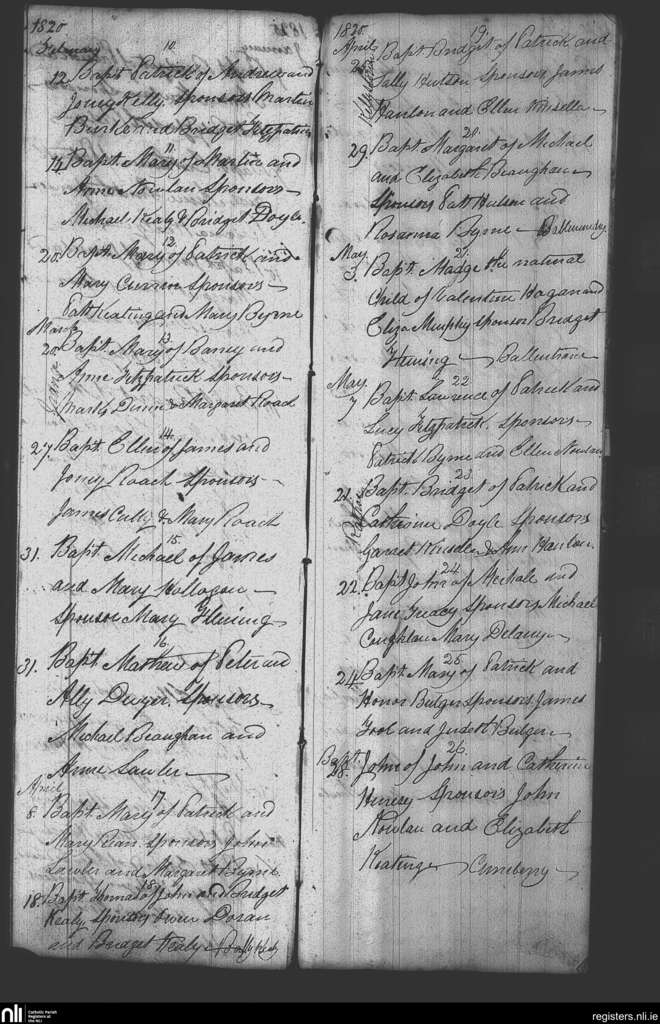 1820
February 10
12. Bapt. Patrick of Andrew and
Joney Kelly. Sponsors Martin
and Bridget Fitzpatrick
11
14 Bapt. Mary of Martin and
Anne Nowlan Sponsors
Michael Kealy & Bridget Doyle.
12
20. Bapt. Mary of Patrick and
Mary Curren Sponsors
Patt Keating and Mary Byrne
March 13
20. Bapt. Mary of Barney and
Anne Fitzpatrick Sponsors
Mark Dunn & Margaret Roach
14
27 Bapt. Ellen of James and
Joney Roach Sponsors
James Cully & Mary Roach
15
31. Bapt. Michael of James
and Mary Hallogan
Sponsor Mary Fleming
16
31. Bapt. Mathew of Peter and
Ally Dwyer, Sponsors
Michael Beaughan and
Anne Lawler
April 17
8. Bapt Mary of Patrick and
Mary Ryan Sponsors John
Lawler and Margaret Byrne
18
18. Bapt Thomas of John and Bridget
Kealy, Sponsors Owen Doran
and Bridget Kealy
1820. 19
April Bapt Bridget of Patrick and
Sally Hutson Sponsors James
Hanlon and Ellen Kinsella
20
29. Bapt. Margaret of Michael
and Elizabeth Beaughan
Sponsors Patt Hutson and
Rosanna Byrne
May 21
3. Bapt. Madge the natural
Child of Valentine Hagan and
Eliza Murphy Sponsor Bridget
Fleming Ballintrane
May 22
7 Bapt. Lawrence of Patrick and
Lucy Fitzpatrick. Sponsors
Patrick Byrne and Ellen Nowlan
23
21. Bapt. Bridget of Patrick and
Catherine Doyle Sponsors
Garret Kinsella & Ann Hanlon.
24
22. Bapt John of Michale and
Jane Treacy Sponsors Michael
Coughlan Mary Delany
25
24 Bapt Mary of Patrick and
Honor Bulger Sponsors James
Fool and Judeth Bulger
26
28. Bapt. John of John and Catherine
Henesy Sponsors John
Nowlan and Elizabeth
Keatinge
nli Catholic Parish
Registers at
the NLI
registers.nli.ie